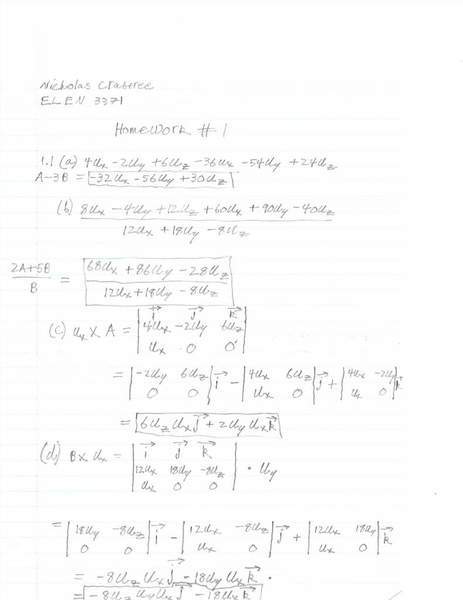 Nicholas Crabtree
ELEN 3371
Homework #1
1.1 (a) 4Ux - 2Uy + 6Uz - 36Ux - 54Uy + 24Uz
A-3B = -32Ux - 56Uy + 30Uz
(b) 8Ux - 4Uy + 12Uz + 60Ux + 90Uy - 40Uz
12Ux + 18Uy - 8Uz
2A+5B / B = 68Ux + 86Uy - 28Uz
12Ux + 18Uy - 8Uz
i j k
(c) Ux X A = | 4Ux -2Uy 6Uz |
Ux 0 0
= | -2Uy 6Uz | i - | 4Ux 6Uz | j + | 4Ux -2Uy | k
0 0 Ux 0 Ux 0
= 6Uz Ux j + 2Uy Ux k
i j k
(d) B x Ux = | 12Ux 18Uy -8Uz | · Uy
Ux 0 0
= | 18Uy -8Uz | i - | 12Ux -8Uz | j + | 12Ux 18Uy | k
0 0 Ux 0 Ux 0
= -8Uz Ux j - 18Uy Ux k ·
= -8Uz Uy Ux j - 18Ux k